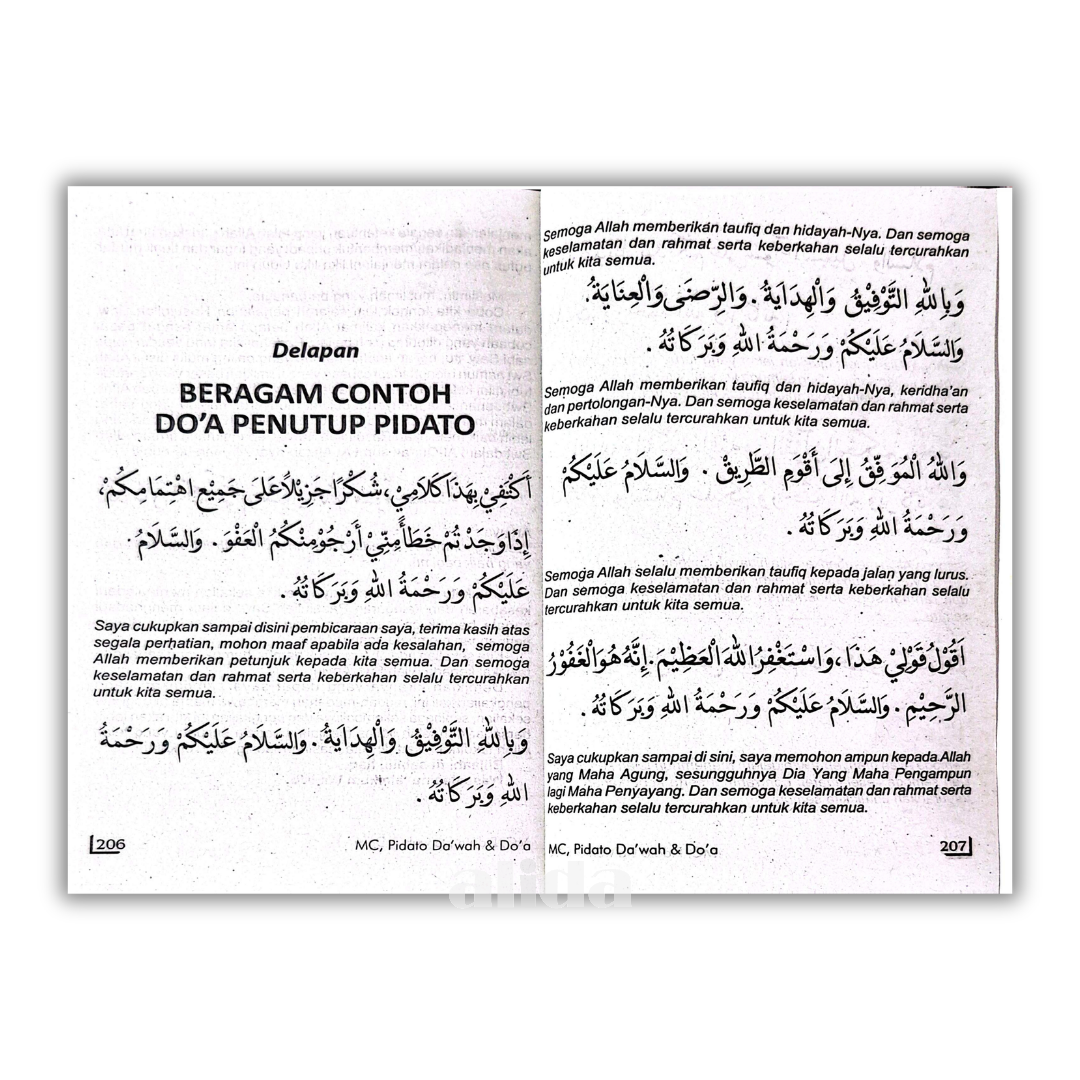 Delapan
BERAGAM CONTOH
DO'A PENUTUP PIDATO
أَكْتَفِيْ بِهَذَا كَلَامِيْ، شُكْرًا جَزِيْلًا عَلَى جَمِيْعِ اهْتِمَامِكُمْ،
إِذَا وَجَدْتُمْ خَطَأً مِنِّيْ أَرْجُوْ مِنْكُمُ الْعَفْوَ . وَالسَّلَامُ
عَلَيْكُمْ وَرَحْمَةُ اللهِ وَبَرَكَاتُهُ .
Saya cukupkan sampai disini pembicaraan saya, terima kasih atas
segala perhatian, mohon maaf apabila ada kesalahan, semoga
Allah memberikan petunjuk kepada kita semua. Dan semoga
keselamatan dan rahmat serta keberkahan selalu tercurahkan
untuk kita semua.
وَبِاللهِ التَّوْفِيْقُ وَالْهِدَايَةُ . وَالسَّلَامُ عَلَيْكُمْ وَرَحْمَةُ
اللهِ وَبَرَكَاتُهُ .
206
MC, Pidato Da'wah & Do'a
Semoga Allah memberikan taufiq dan hidayah-Nya. Dan semoga
keselamatan dan rahmat serta keberkahan selalu tercurahkan
untuk kita semua.
وَبِاللهِ التَّوْفِيْقُ وَالْهِدَايَةُ . وَالرِّضَى وَالْعِنَايَةُ.
وَالسَّلَامُ عَلَيْكُمْ وَرَحْمَةُ اللهِ وَبَرَكَاتُهُ .
Semoga Allah memberikan taufiq dan hidayah-Nya, keridha'an
dan pertolongan-Nya. Dan semoga keselamatan dan rahmat serta
keberkahan selalu tercurahkan untuk kita semua.
وَاللهُ الْمُوَفِّقُ إِلَى أَقْوَمِ الطَّرِيْقْ . وَالسَّلَامُ عَلَيْكُمْ
وَرَحْمَةُ اللهِ وَبَرَكَاتُهُ .
Semoga Allah selalu memberikan taufiq kepada jalan yang lurus.
Dan semoga keselamatan dan rahmat serta keberkahan selalu
tercurahkan untuk kita semua.
اَقُوْلُ قَوْلِيْ هَذَا ، وَاسْتَغْفِرُ اللهَ الْعَظِيْمَ. إِنَّهُ هُوَ الْغَفُوْرُ
الرَّحِيْمِ . وَالسَّلَامُ عَلَيْكُمْ وَرَحْمَةُ اللهِ وَبَرَكَاتُهُ .
Saya cukupkan sampai di sini, saya memohon ampun kepada Allah
yang Maha Agung, sesungguhnya Dia Yang Maha Pengampun
lagi Maha Penyayang. Dan semoga keselamatan dan rahmat serta
keberkahan selalu tercurahkan untuk kita semua.
MC, Pidato Da'wah & Do'a
207
alida